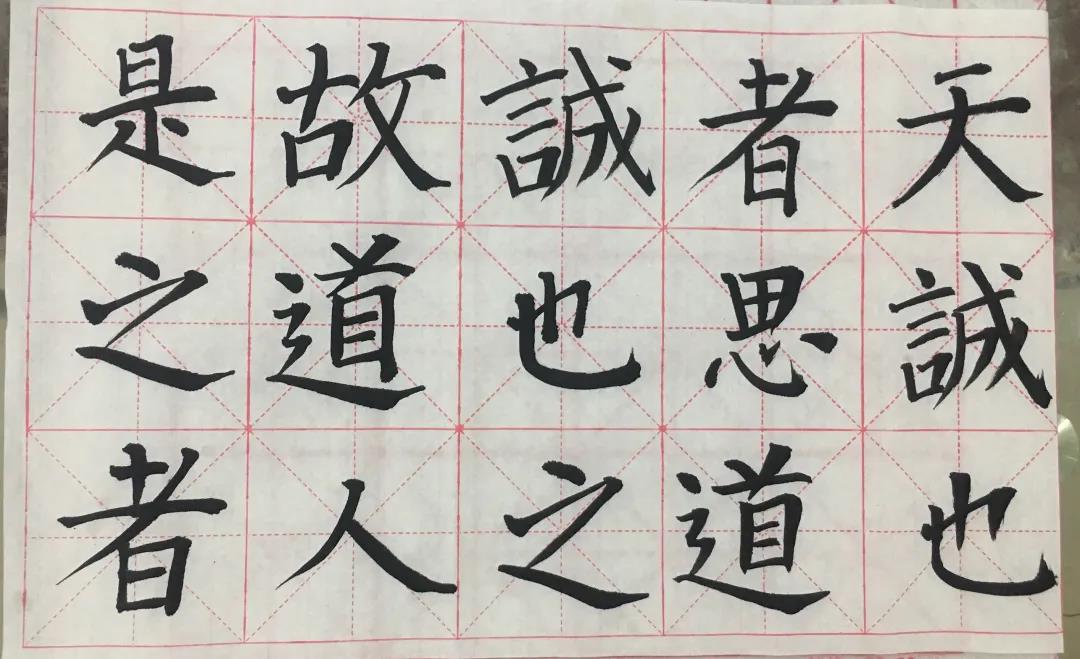 是故誠者天
之道也思誠
者人之道也